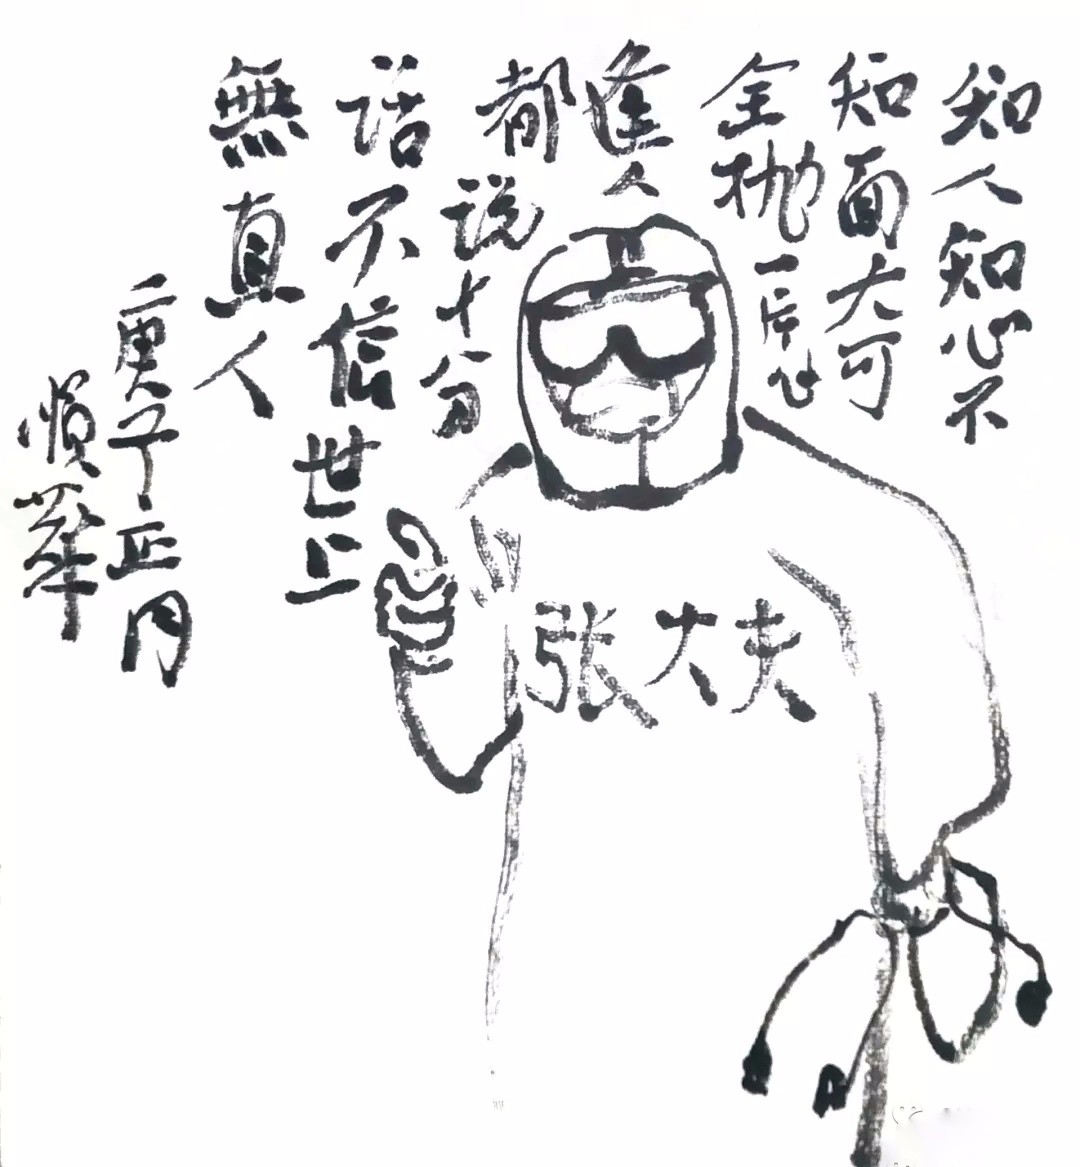 知人知心不
知面大可
全抛一片心
逢人
都说十分
话不信世上
無真人
庚子正月
順華
张大夫